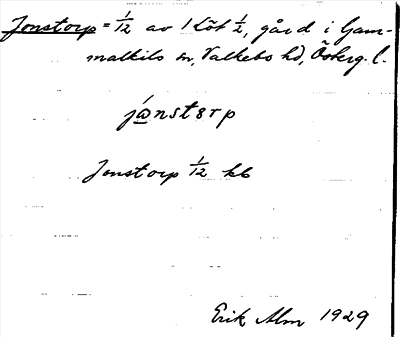 Jonstorp = 1/12 av 1 Löt 1/2, gård i Gam-
malkils sn, Valkebo hd, Österg. l.
jȧnstɘrp
Jonstorp 1/12 kb
Erik Alm 1929